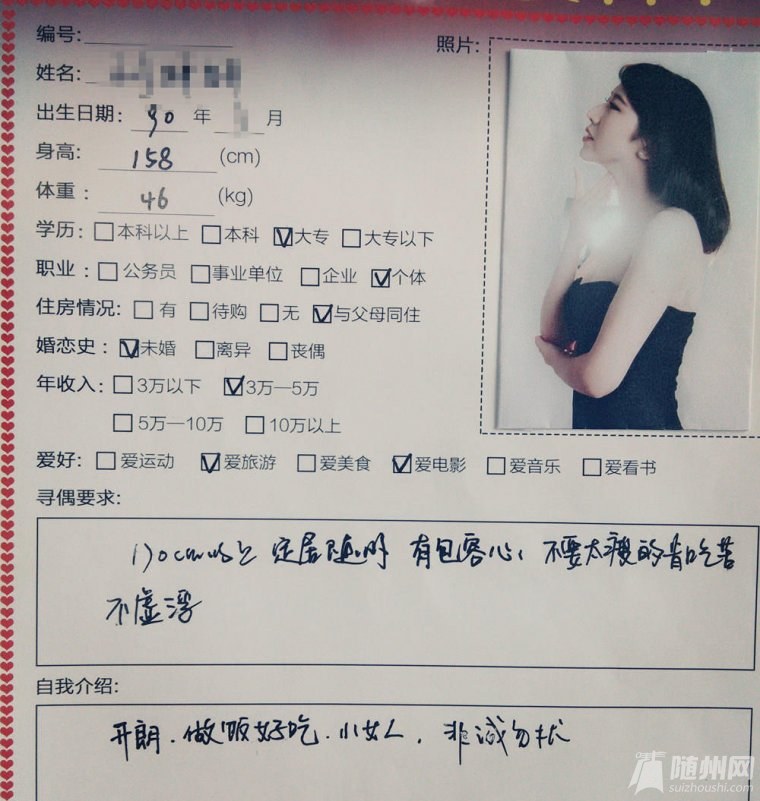 编号:
照片:
姓名:
出生日期: 90 年 月
身高: 158 (cm)
体重: 46 (kg)
学历: □本科以上 □本科 ☑大专 □大专以下
职业: □公务员 □事业单位 □企业 ☑个体
住房情况: □有 □待购 □无 ☑与父母同住
婚恋史: ☑未婚 □离异 □丧偶
年收入: □3万以下 ☑3万—5万
□5万—10万 □10万以上
爱好: □爱运动 ☑爱旅游 □爱美食 ☑爱电影 □爱音乐 □爱看书
寻偶要求:
170cm以上 定居随州 有包容心、不要太瘦的肯吃苦
不虚浮
自我介绍:
开朗.做饭好吃.小女人,非诚勿扰
随州网
suizhoushi.com